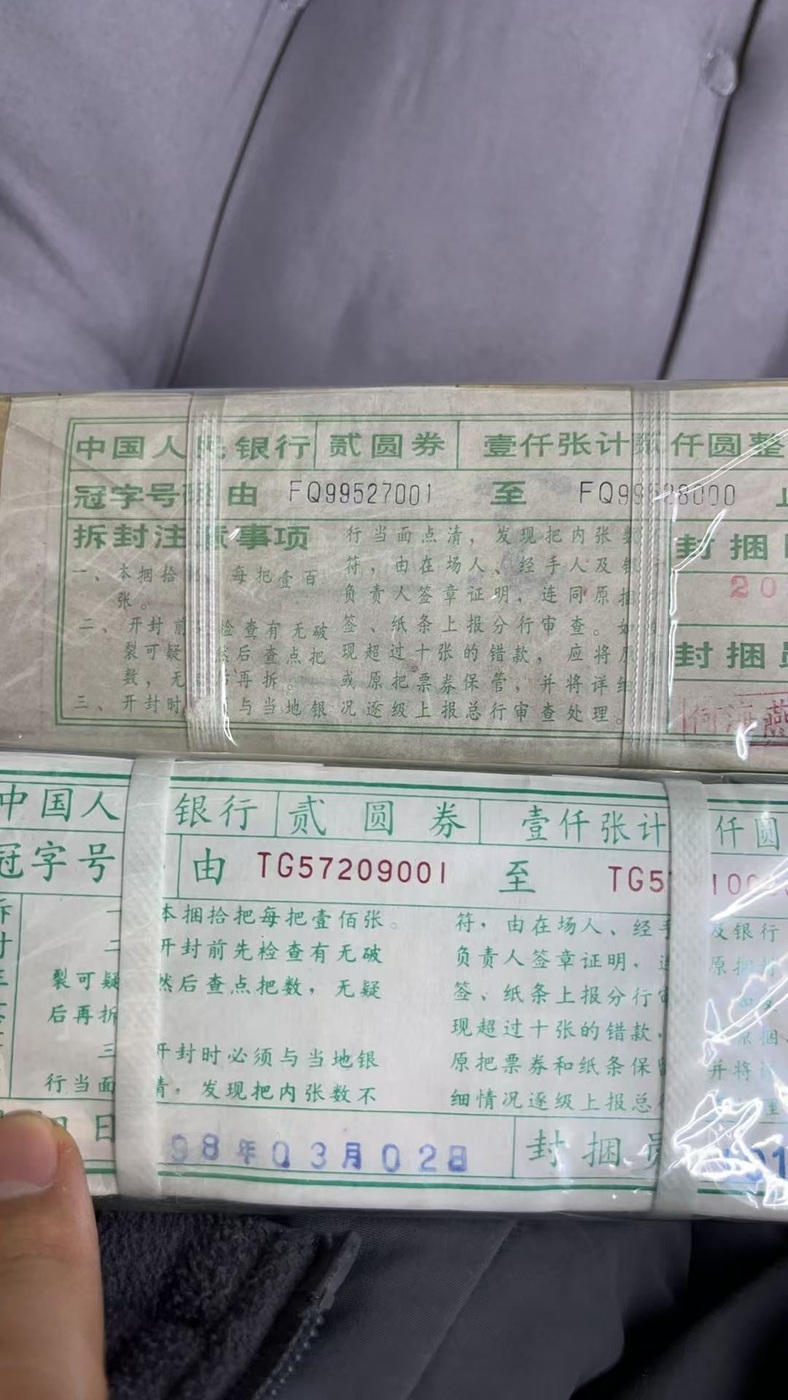 中国人民银行 贰圆券 壹仟张计贰仟圆整
冠字号码 由 FQ99527001 至 FQ99528000 止
拆封注意事项
一、本捆拾 每把壹百
张。
二、开封前 检查有无破
裂可疑 然后查点把
数,无 后再拆。
三、开封时 须与当地银
行当面点清,发现把内张数
符,由在场人、经手人及银
负责人签章证明,连同原捆
签、纸条上报分行审查。如
现超过十张的错款,应将原
或原把票券保管,并将详细
况逐级上报总行审查处理。
封捆
20
封捆员
何海燕
中国人 银行 贰圆券 壹仟张计 仟圆
冠字号 由 TG57209001 至 TG5 10
一 本捆拾把每把壹佰张。
二 开封前先检查有无破
裂可疑 然后查点把数,无疑
后再拆
三 开封时必须与当地银
行当面 清,发现把内张数不
符,由在场人、经手 及银行
负责人签章证明, 原捆
签、纸条上报分行
现超过十张的错款,
原把票券和纸条保 并将
细情况逐级上报总 理
日 98年03月02日 封捆员